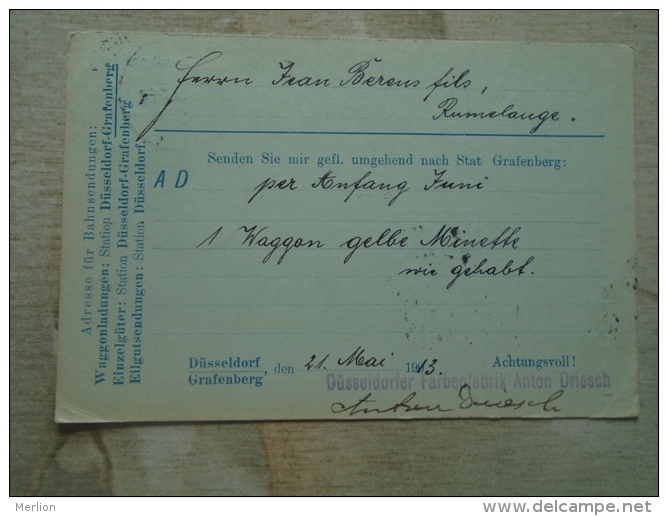 Herrn Jean Bérens fils,
Rumelange.
Adresse für Bahnsendungen:
Waggonladungen: Station Düsseldorf-Grafenberg
Einzelgüter: Station Düsseldorf-Grafenberg
Eilgutsendungen: Station Düsseldorf.
A D
Senden Sie mir gefl. umgehend nach Stat Grafenberg:
per Anfang Juni
1 Waggon gelbe Minette
wie gehabt.
Düsseldorf
Grafenberg, den 21. Mai 1913.
Achtungsvoll!
Düsseldorfer Farbenfabrik Anton Driesch
Anton Driesch
Merlion
www.delcampe.net